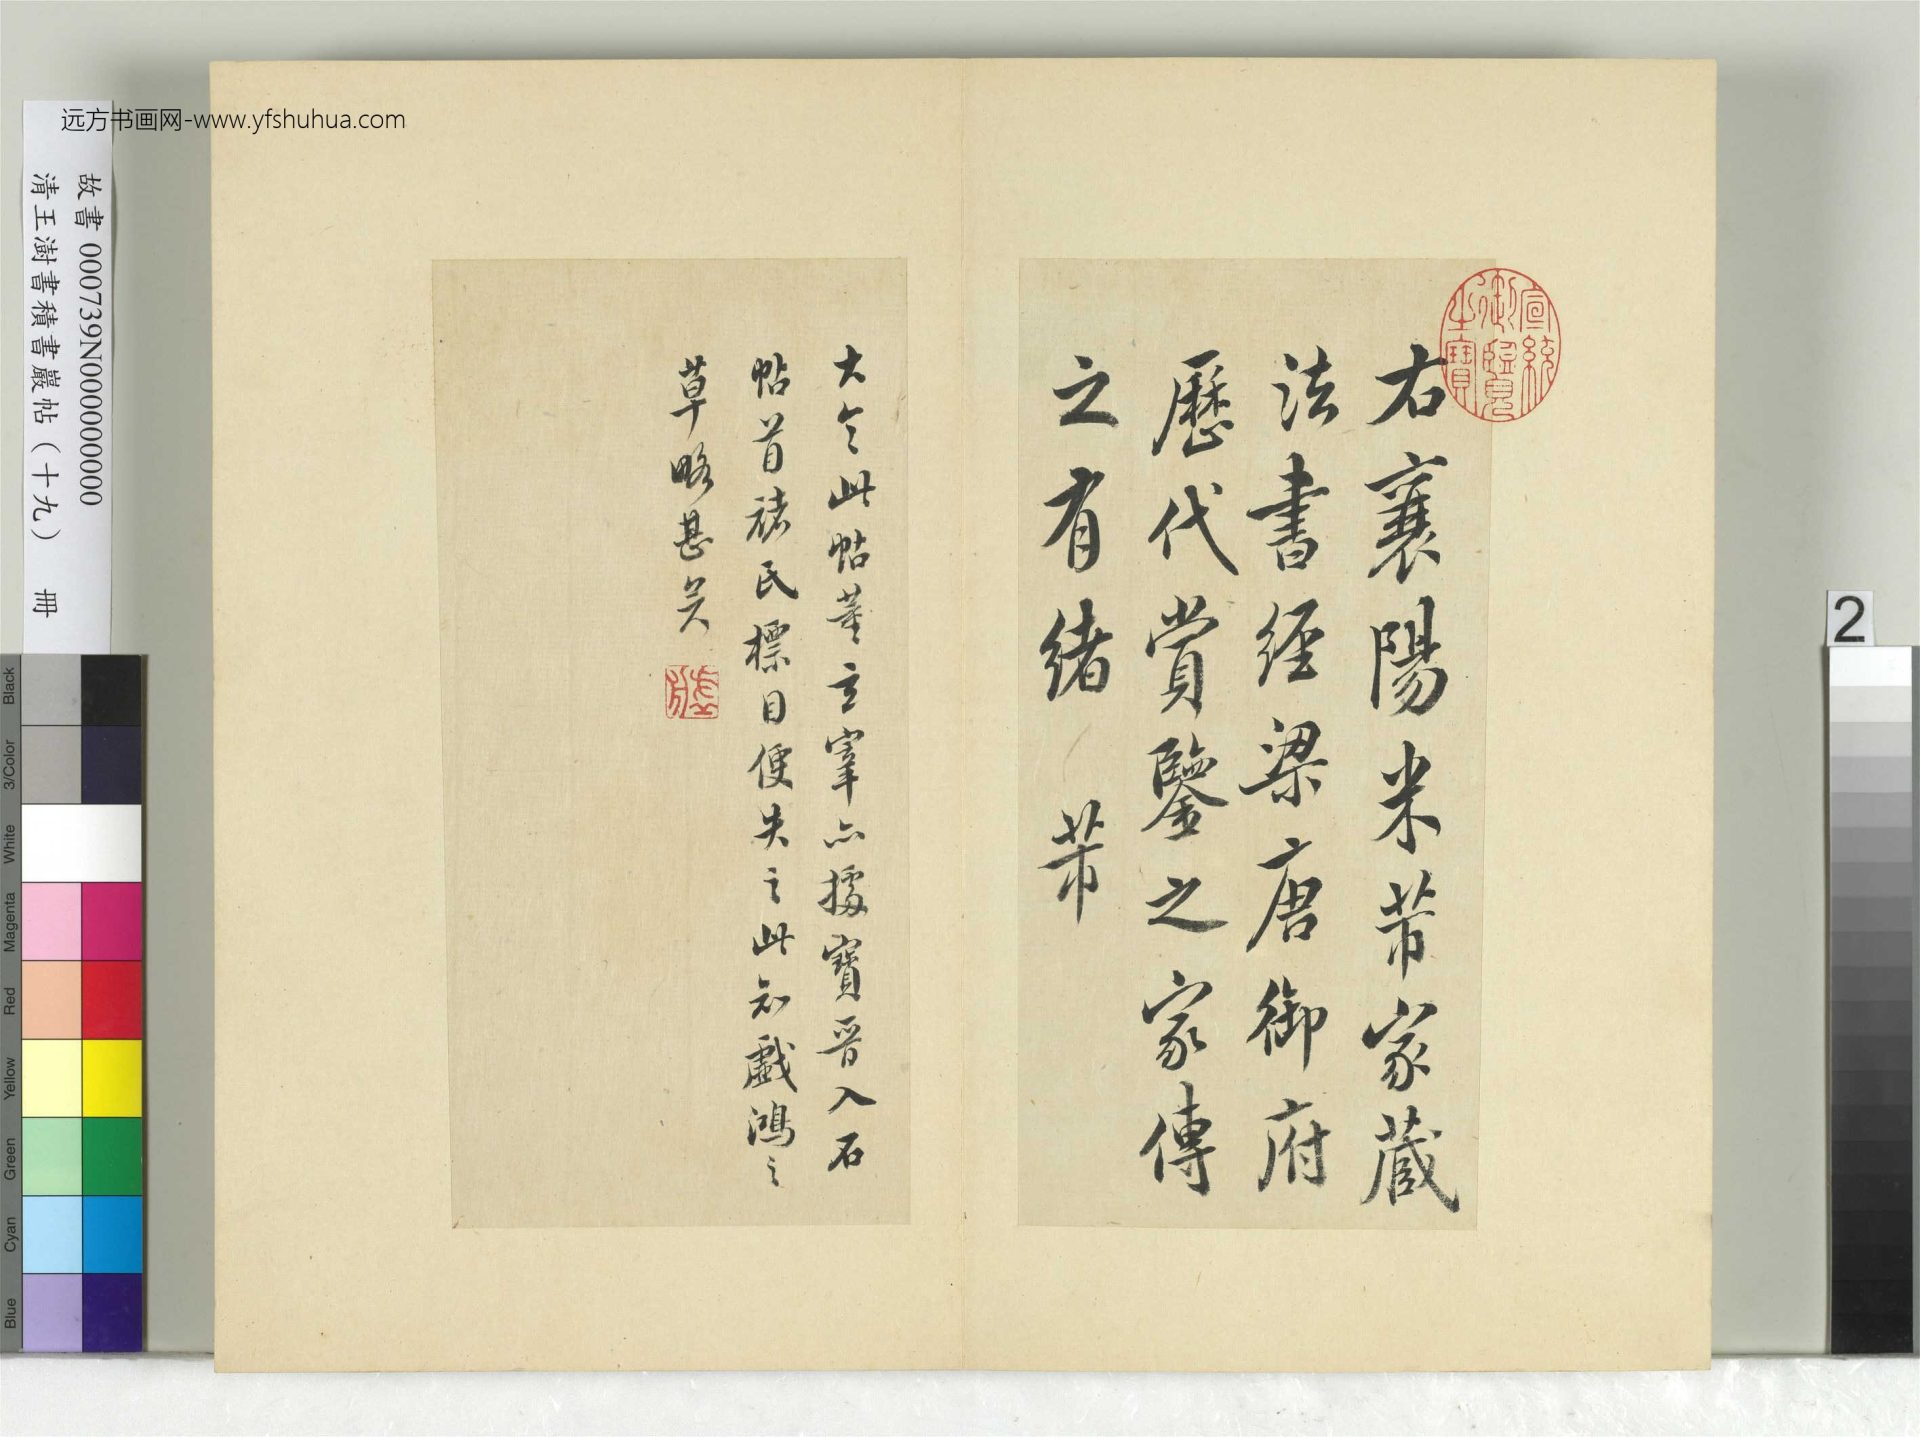 远方书画网-www.yfshuhua.com
故書 000739N000000000
清王澍書積書巖帖（十九） 冊
右襄陽米芾家藏
法書經梁唐御府
歷代賞鑒之家傳
之有緒 芾
宣統御覽之寶
大令此帖董玄宰亦據寶晉入石
帖首褚氏標目便失之此知戲鴻之
草略甚矣
2
Black
3/Color
White
Magenta
Red
Yellow
Green
Cyan
Blue